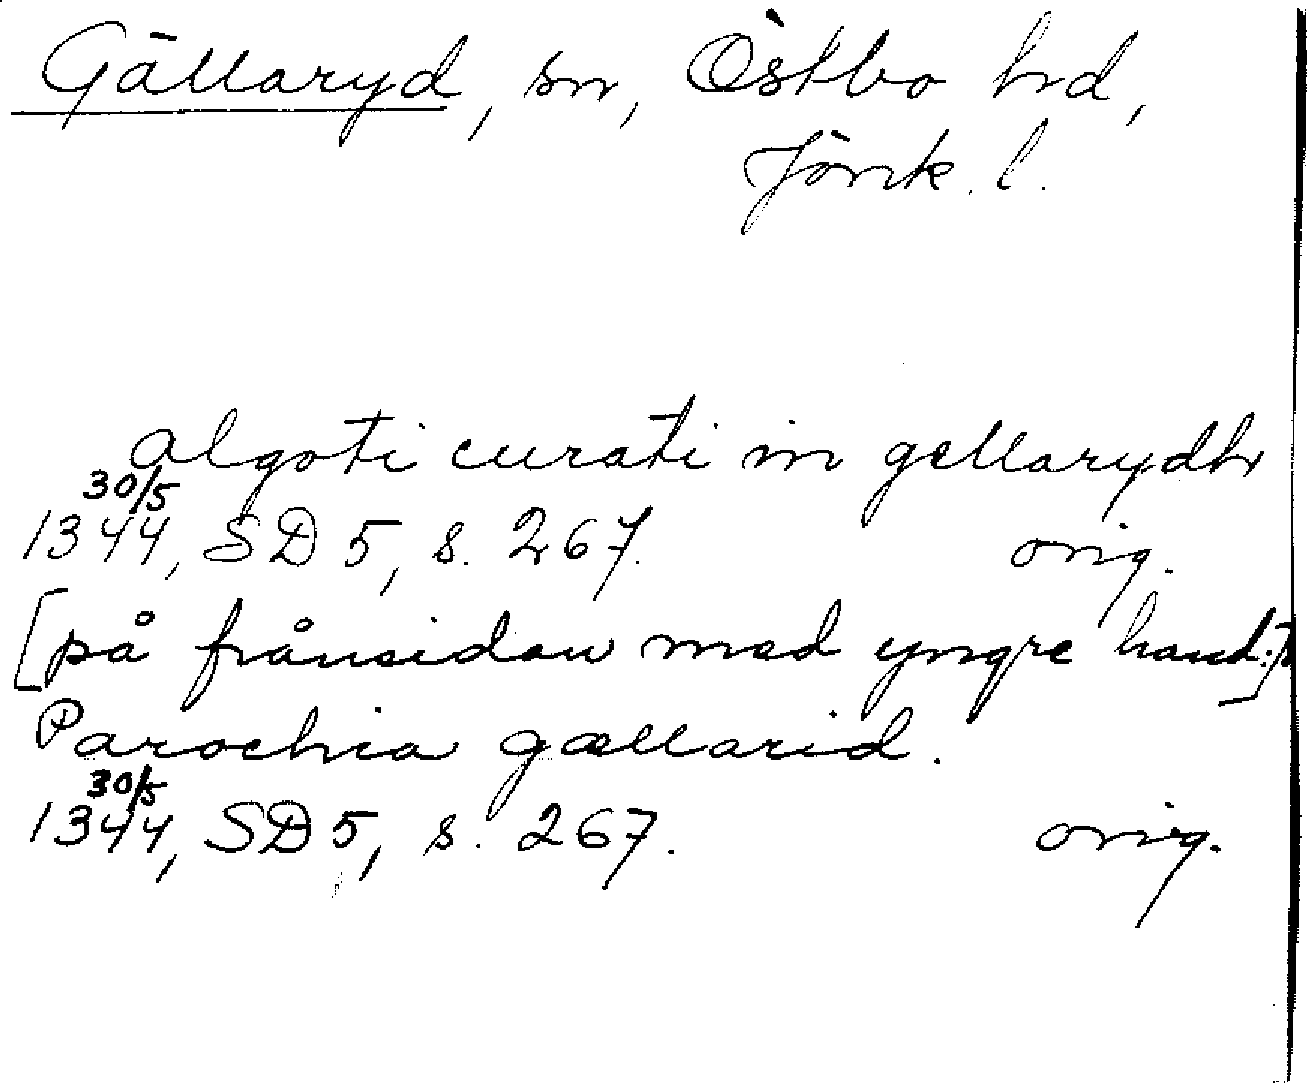 Gällaryd, sn, Östbo hd,
Jönk. l.
algoti curati in gellarydh
30/5
1344, SD 5, s. 267. orig.
[på frånsidan med yngre hand:]
Parochia gællarid.
30/5
1344, SD 5, s. 267. orig.